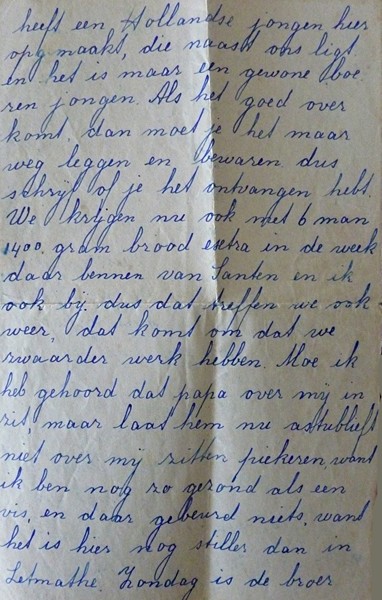 heeft een Hollandse jongen hier
opg maakt, die naast ons ligt
en het is maar een gewone boe
ren jongen. Als het goed over
komt, dan moet je het maar
weg leggen en bewaren dus
schrijf of je het ontvangen hebt.
We krijgen nu ook met 6 man
1400 gram brood esctra in de week
daar bennen van Santen en ik
ook bij. dus dat treffen we ook
weer, dat komt om dat we
zwaarder werk hebben. Moe ik
heb gehoord dat papa over mij in
zit, maar laat hem nu astublieft
niet over mij zitten piekeren, want
ik ben nog zo gezond als een
vis, en daar gebeurd niets, want
het is hier nog stiller dan in
Letmathe Zondag is de broer